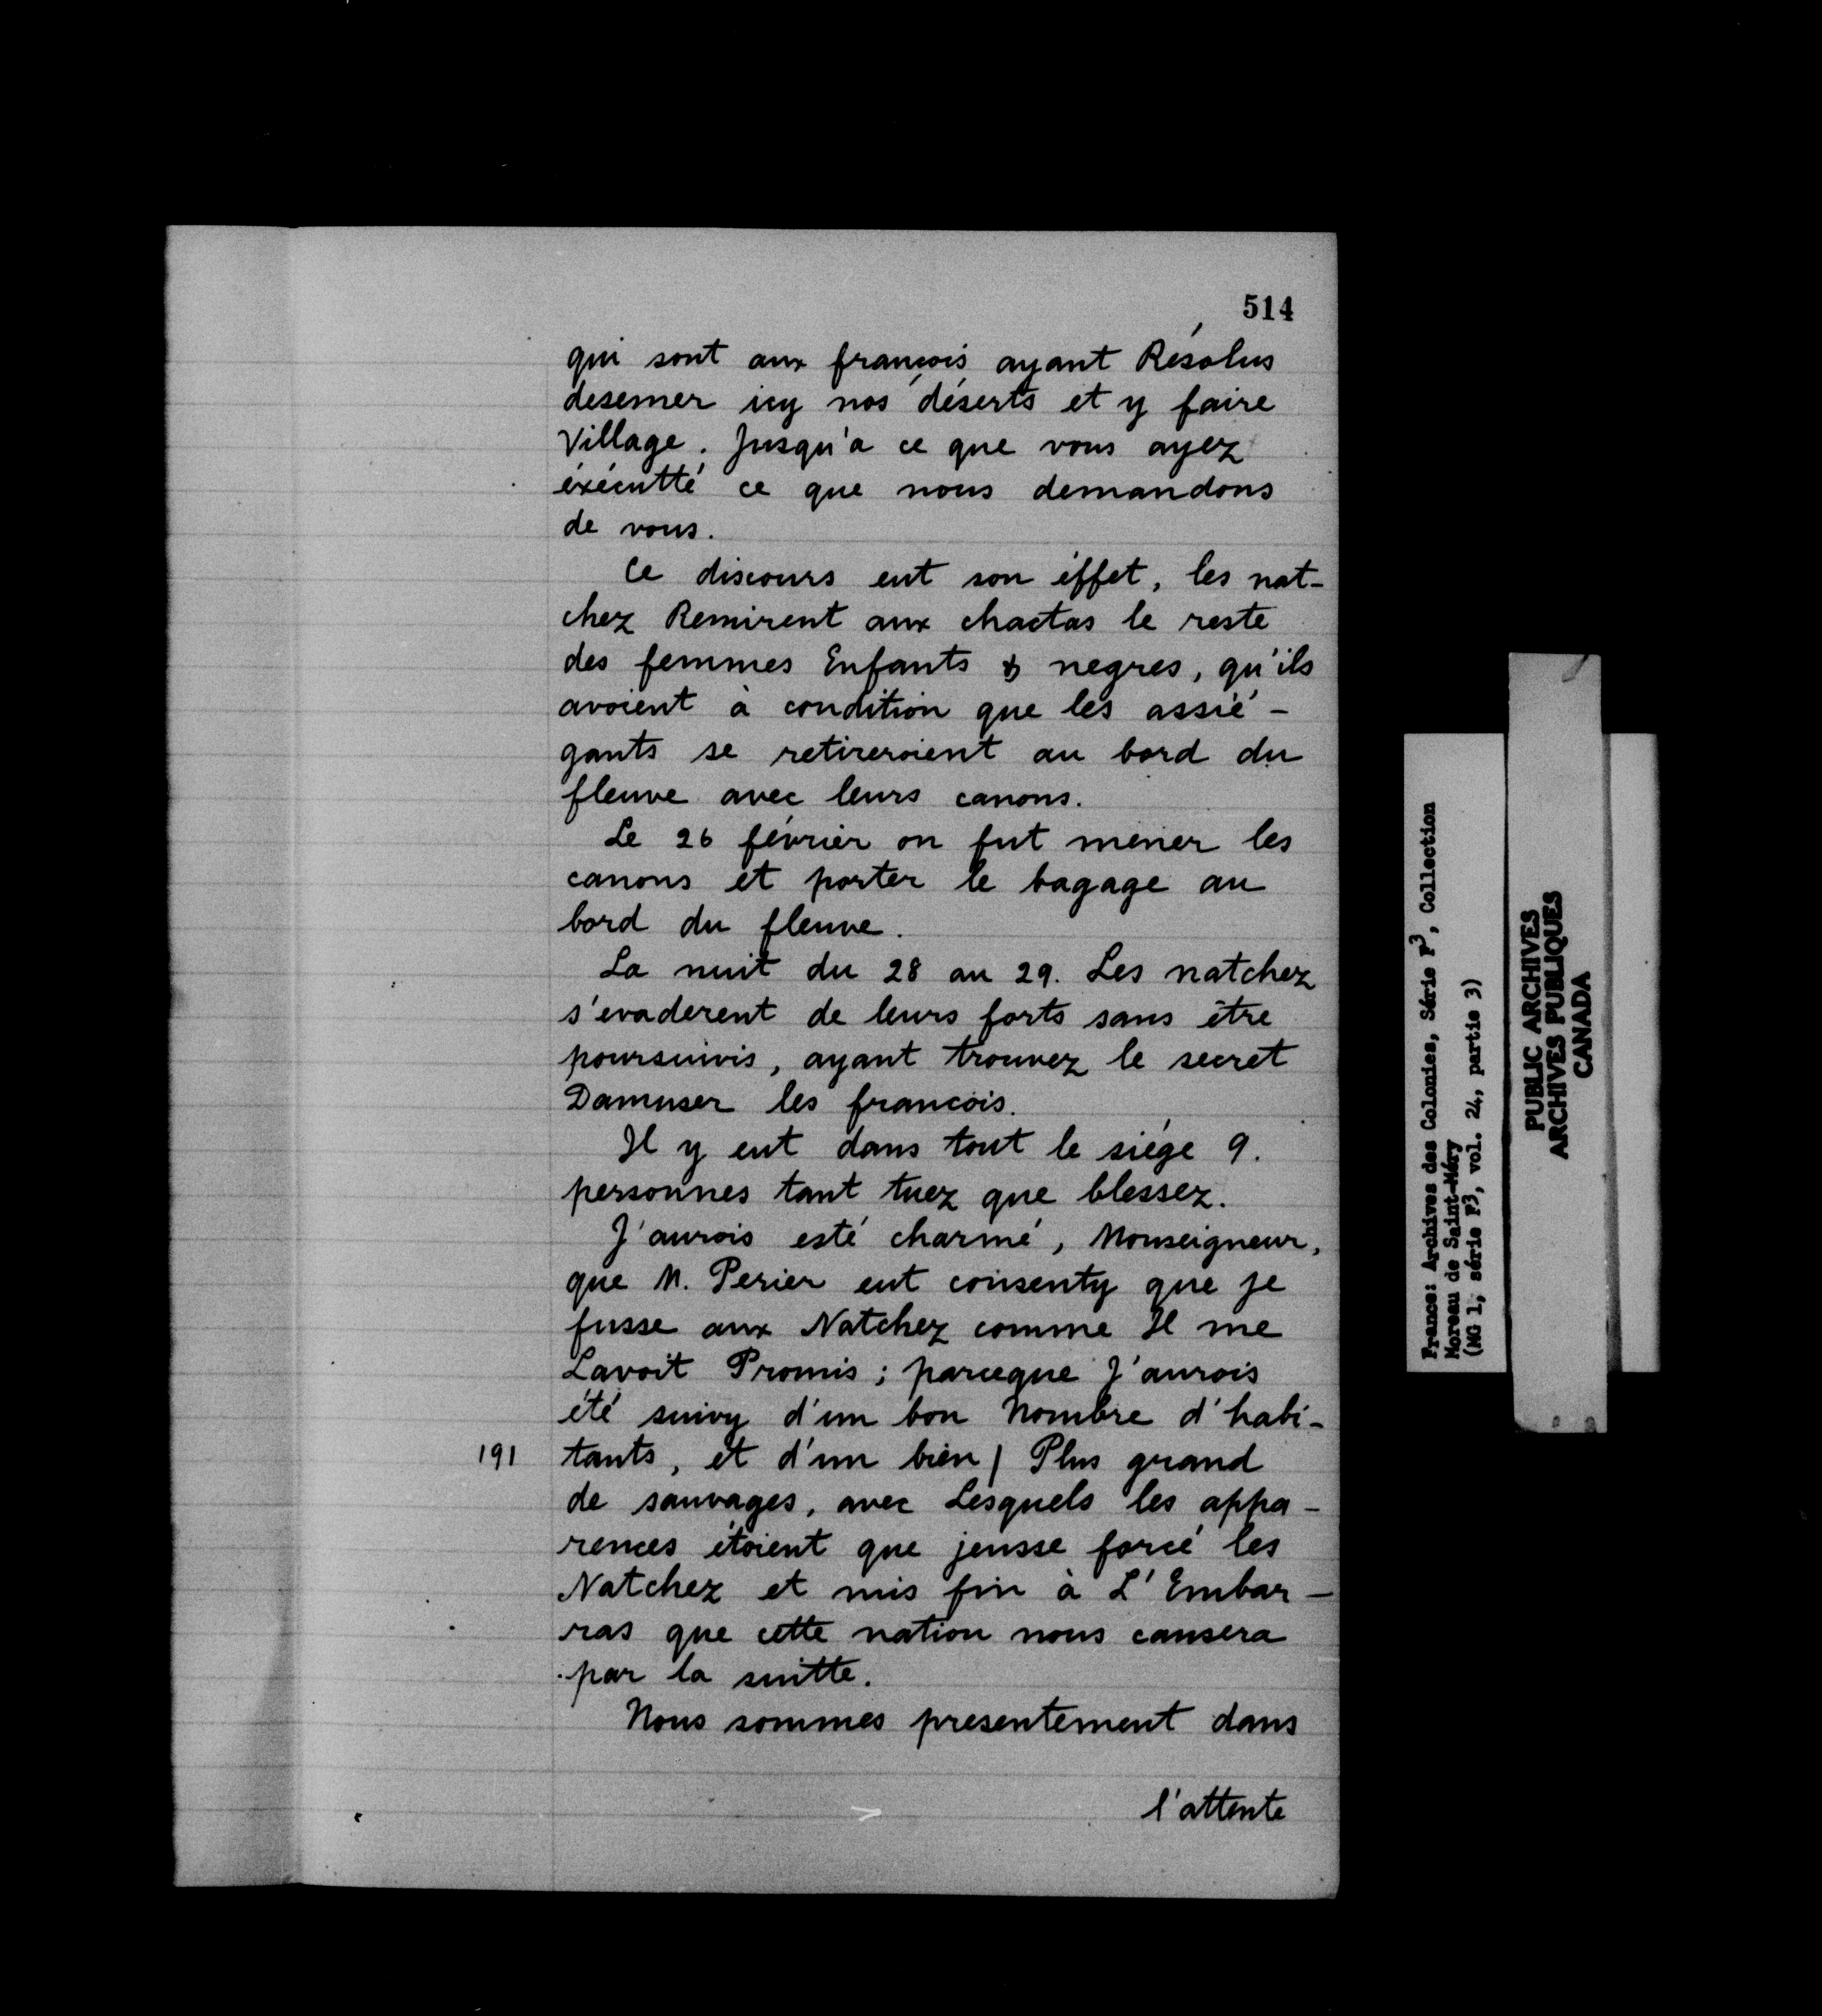 514
qui sont aux françois ayant Résolus
desemer icy nos déserts et y faire
Village. Jusqu'a ce que vous ayez
éxécutté ce que nous demandons
de vous.
Ce discours eut son éffet, les nat-
chez Remirent aux chactas le reste
des femmes Enfants & negres, qu'ils
avoient à condition que les assié-
gants se retireroient au bord du
fleuve avec leurs canons.
Le 26 février on fut mener les
canons et porter le bagage au
bord du fleuve.
La nuit du 28 au 29. Les natchez
s'evaderent de leurs forts sans être
poursuivis, ayant trouvez le secret
Damuser les francois.
Il y eut dans tout le siége 9.
personnes tant tuez que blessez.
J'aurois esté charmé, Monseigneur,
que M. Perier eut consenty que je
fusse aux Natchez comme Il me
Lavoit Promis; parceque J'aurois
été suivy d'un bon Nombre d'habi-
191 tants, et d'un bien/ Plus grand
de sauvages, avec Lesquels les appa-
rences étoient que jeusse forcé les
Natchez et mis fin à L'Embar-
ras que cette nation nous causera
par la suitte.
Nous sommes presentement dans
l'attente
France: Archives des Colonies, Série F3, Collection
Moreau de Saint-Méry
(MG 1, série F3, vol. 24, partie 3)
PUBLIC ARCHIVES
ARCHIVES PUBLIQUES
CANADA